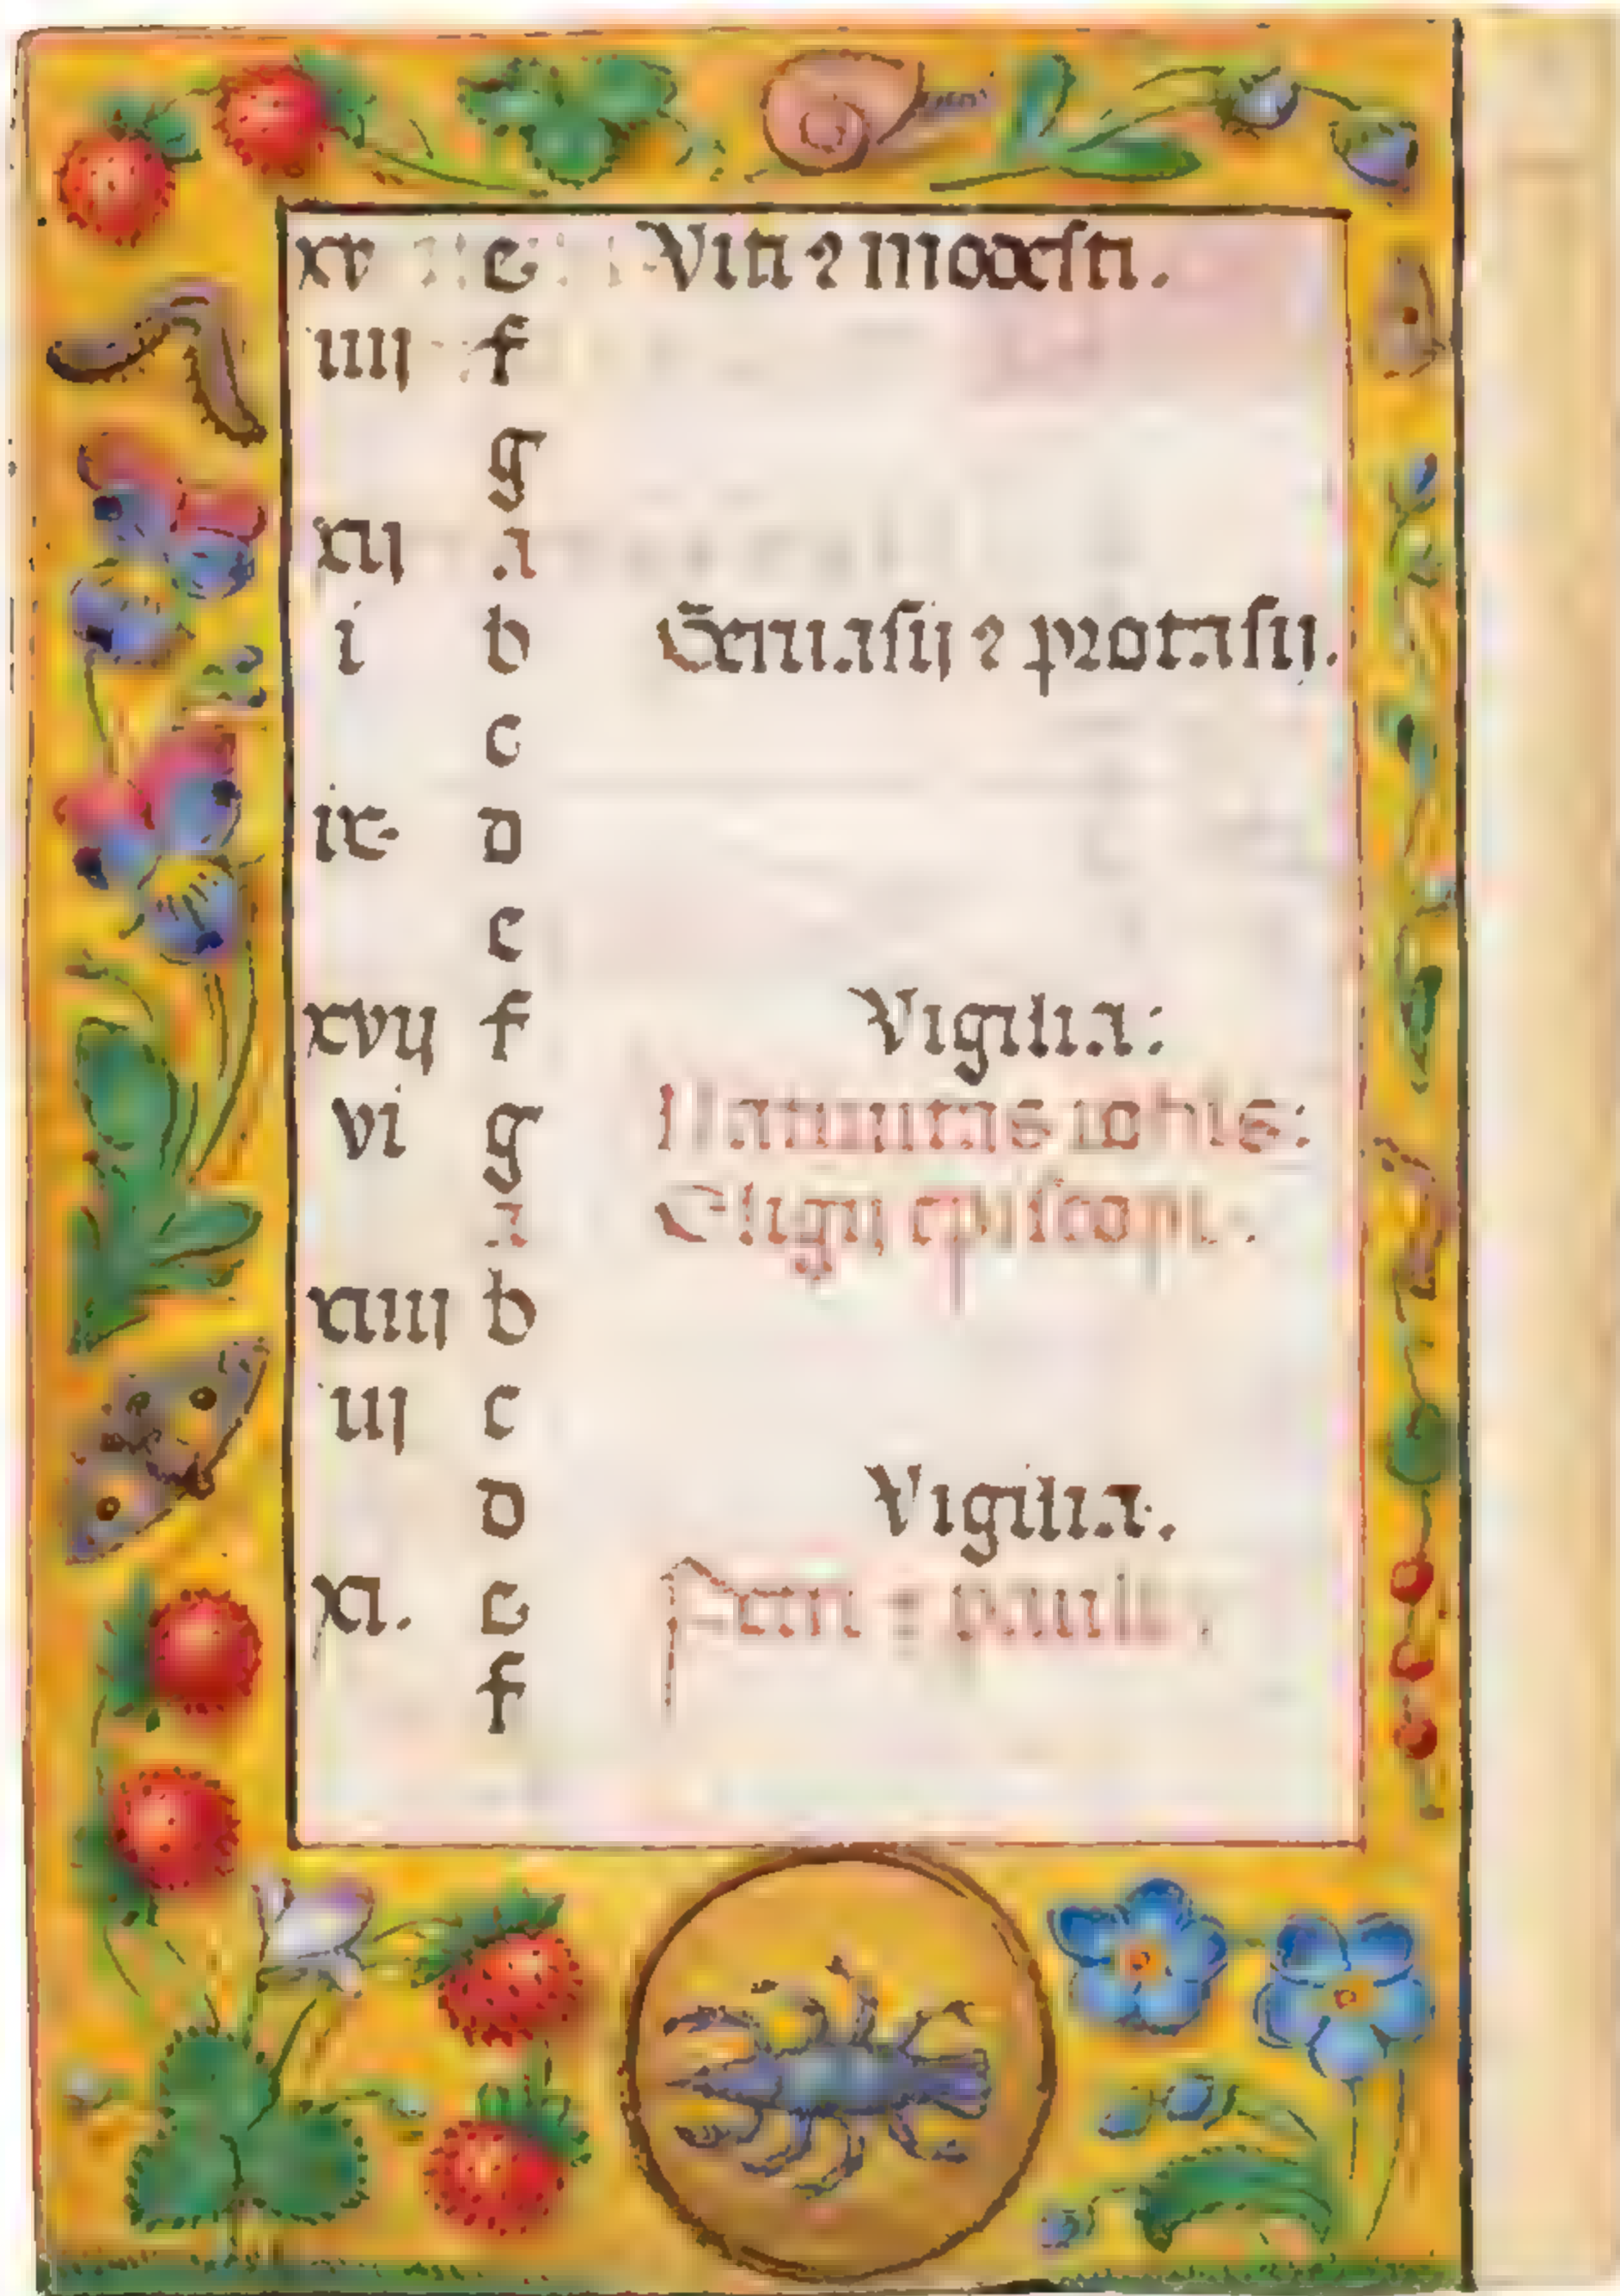 xv e Viti ⁊ modesti.
iiij f
g
xij a
i b Geruasij ⁊ prothasij.
c
ix d
e
xvij f Vigilia:
vi g Natiuitas iohis:
a Eligij episcopi.
xiiij b
iij c
d Vigilia.
xi. e Petri ⁊ pauli.
f